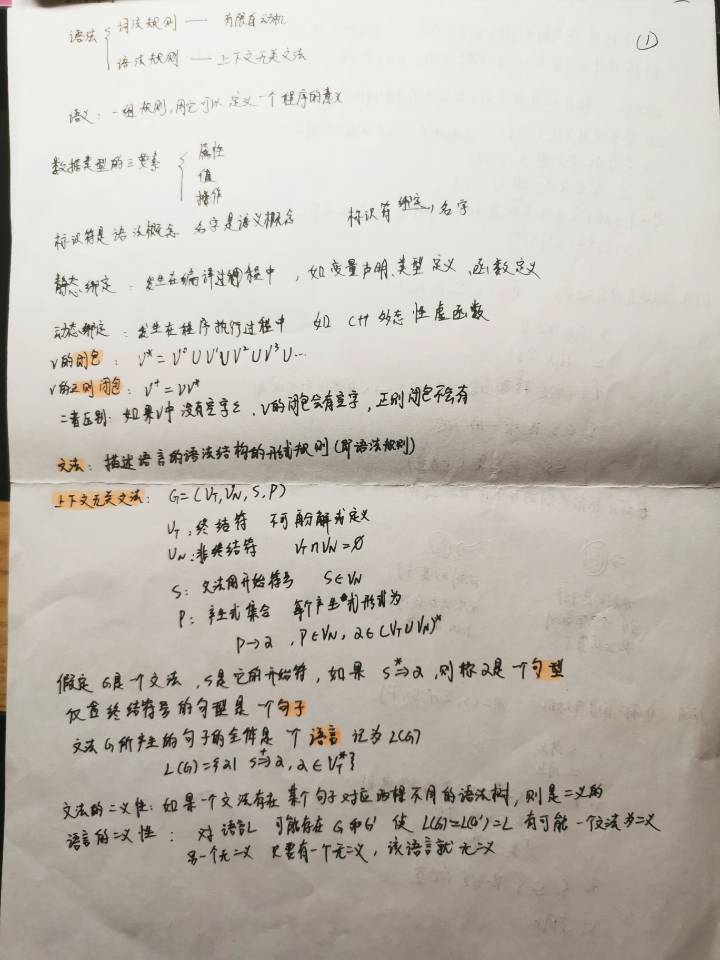 ①
语法 { 词法规则 —— 有限自动机
语法规则 —— 上下文无关文法
语义：一组规则，用它可以定义一个程序的意义
数据类型的三要素 { 属性
值
操作
标识符是语法概念 名字是语义概念 标识符 绑定→ 名字
静态绑定：发生在编译过程中，如变量声明、类型定义、函数定义
动态绑定：发生在程序执行过程中 如 C++ 多态性虚函数
V的闭包：V* = V⁰∪V¹∪V²∪V³∪…
V的正则闭包：V⁺ = VV*
二者区别：如果V中没有空字ε，V的闭包会有空字，正则闭包不会有
文法：描述语言的语法结构的形式规则(即语法规则)
上下文无关文法：G=(VT,VN,S,P)
VT：终结符 不可再分解或定义
VN：非终结符 VT∩VN=∅
S：文法开始符号 S∈VN
P：产生式集合 每个产生式形式为
P→α，P∈VN，α∈(VT∪VN)*
假定G是一个文法，S是它的开始符，如果 S*⇒α，则称α是一个句型
仅含终结符号的句型是一个句子
文法G所产生的句子的全体是一个语言 记为L(G)
L(G)={α| S⁺⇒α, α∈VT*}
文法的二义性：如果一个文法存在某个句子对应两棵不同的语法树，则是二义的
语言的二义性：对语言L 可能存在G和G' 使 L(G)=L(G')=L 有可能一个文法为二义
另一个无二义 只要有一个无二义，该语言就无二义